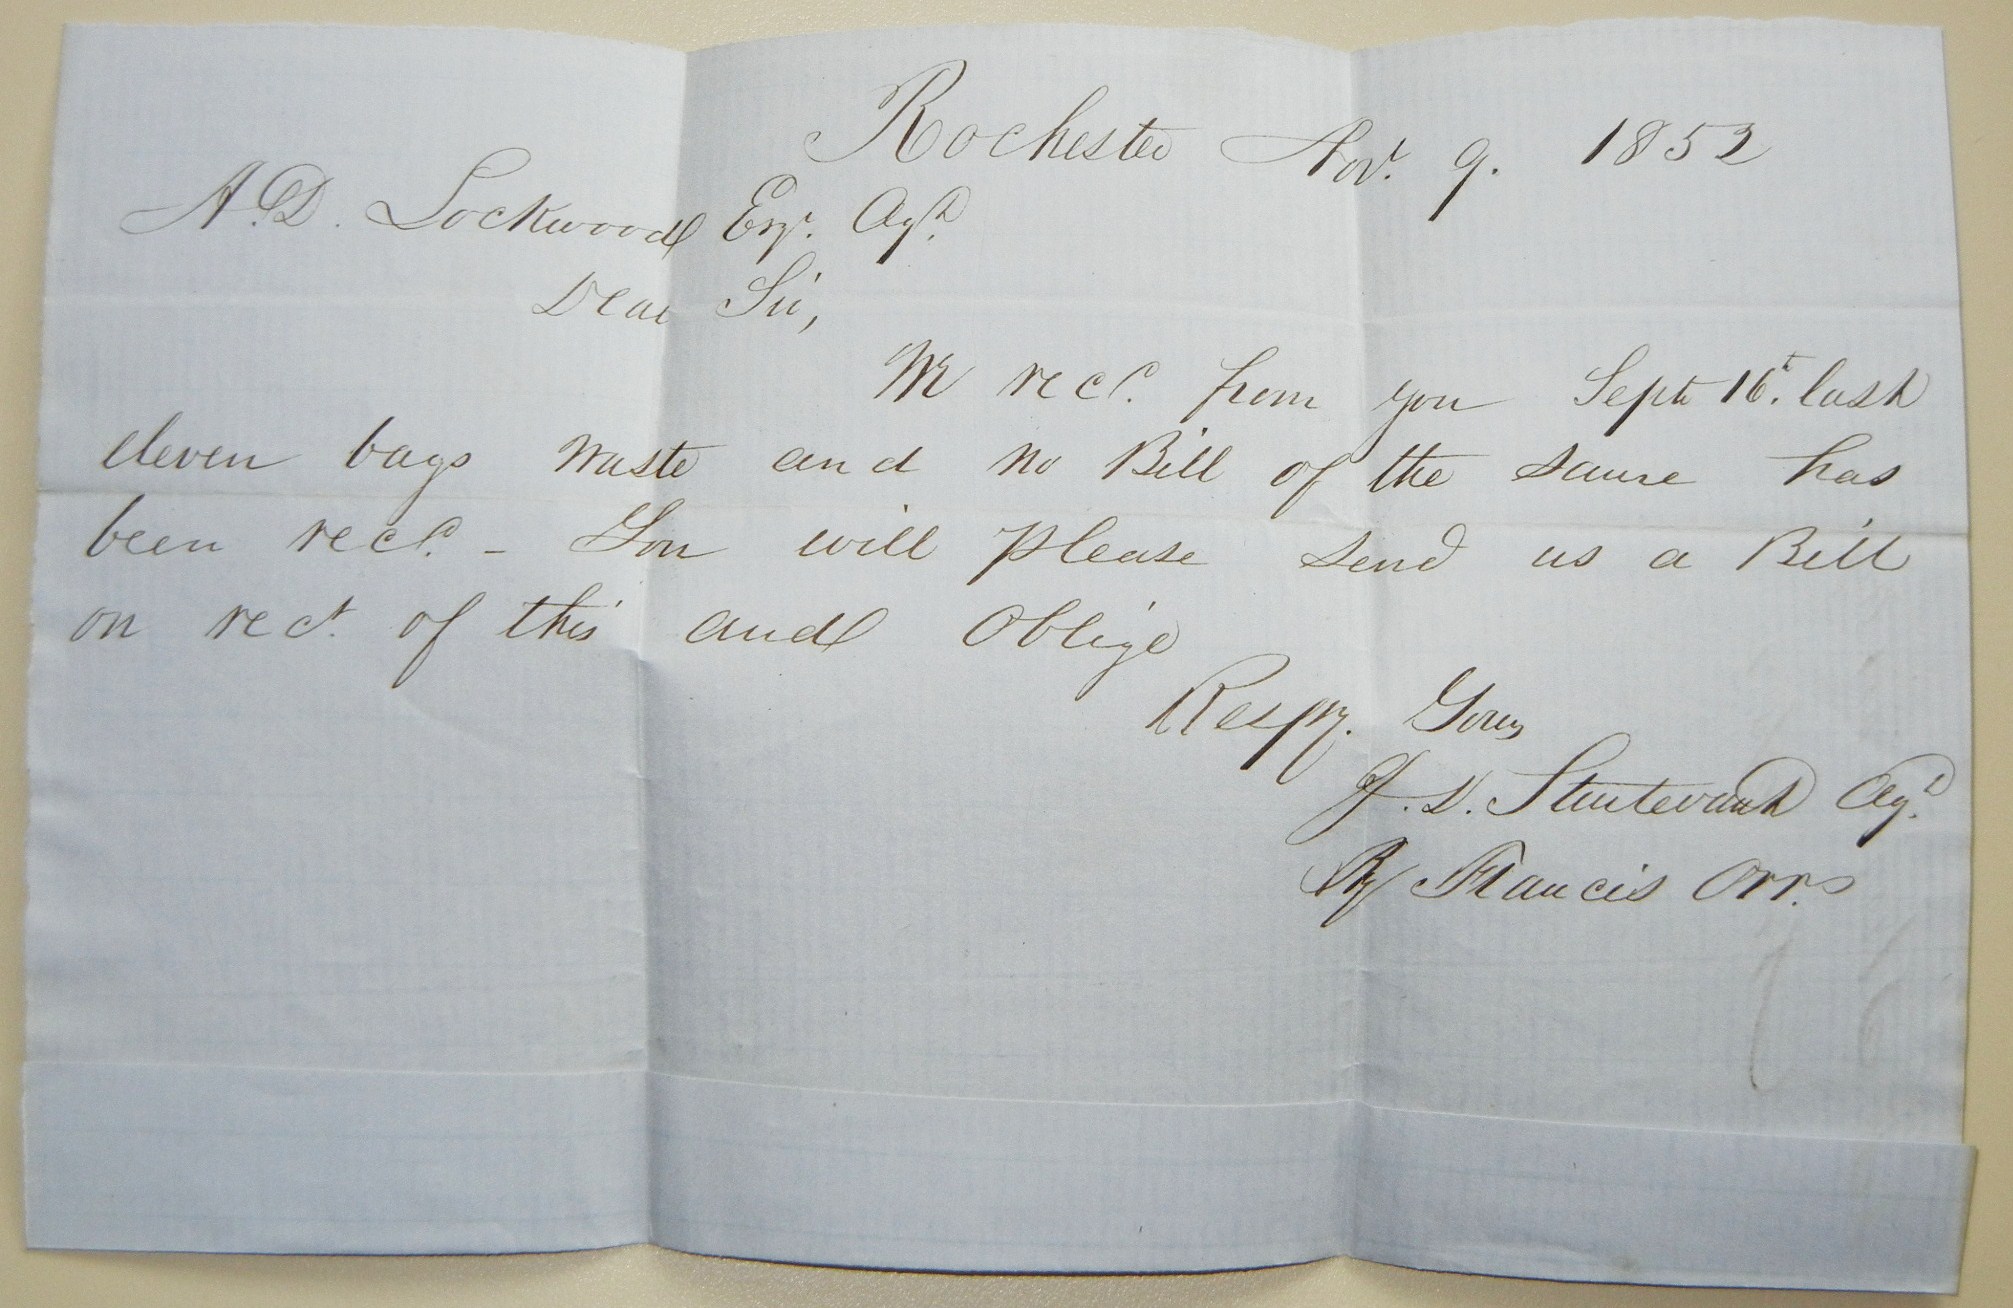 Rochester Nov. 9. 1852
A.D. Lockwood Esqr. Agt.
Dear Sir,
We recd. from you Sept 16t. last
eleven bags waste and no Bill of the same has
been recd. - You will please send us a Bill
on rect. of this and Oblige
Respy. Yours
J. D. Sturtevant Agt.
By Francis Orr.